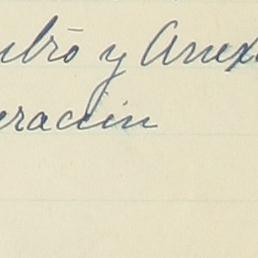 ulró y Anex
eración